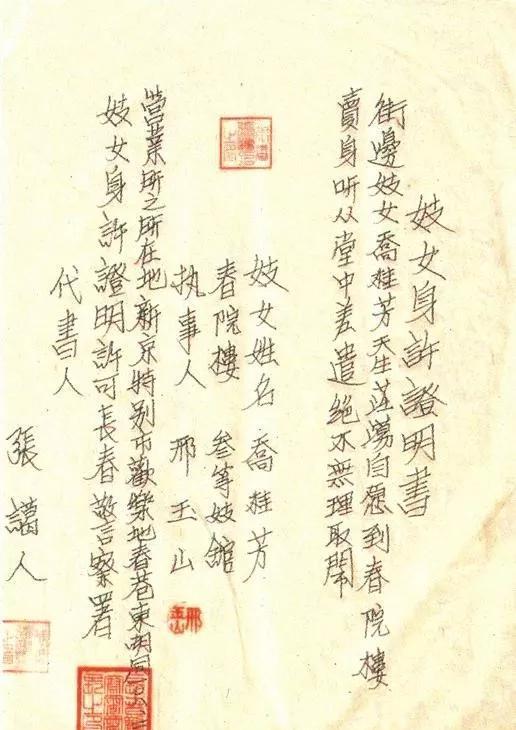 妓女身許證明書
街邊妓女喬桂芳天生淫蕩自愿到春院樓
賣身听从堂中差遣絕不無理取鬧
妓女姓名 喬桂芳
春院樓 叁等妓舘
执事人 邢玉山
邢玉山
營業所之所在地新京特别市歡樂地春巷東胡同
妓女身許證明許可長春敬言察署
代書人
張 人